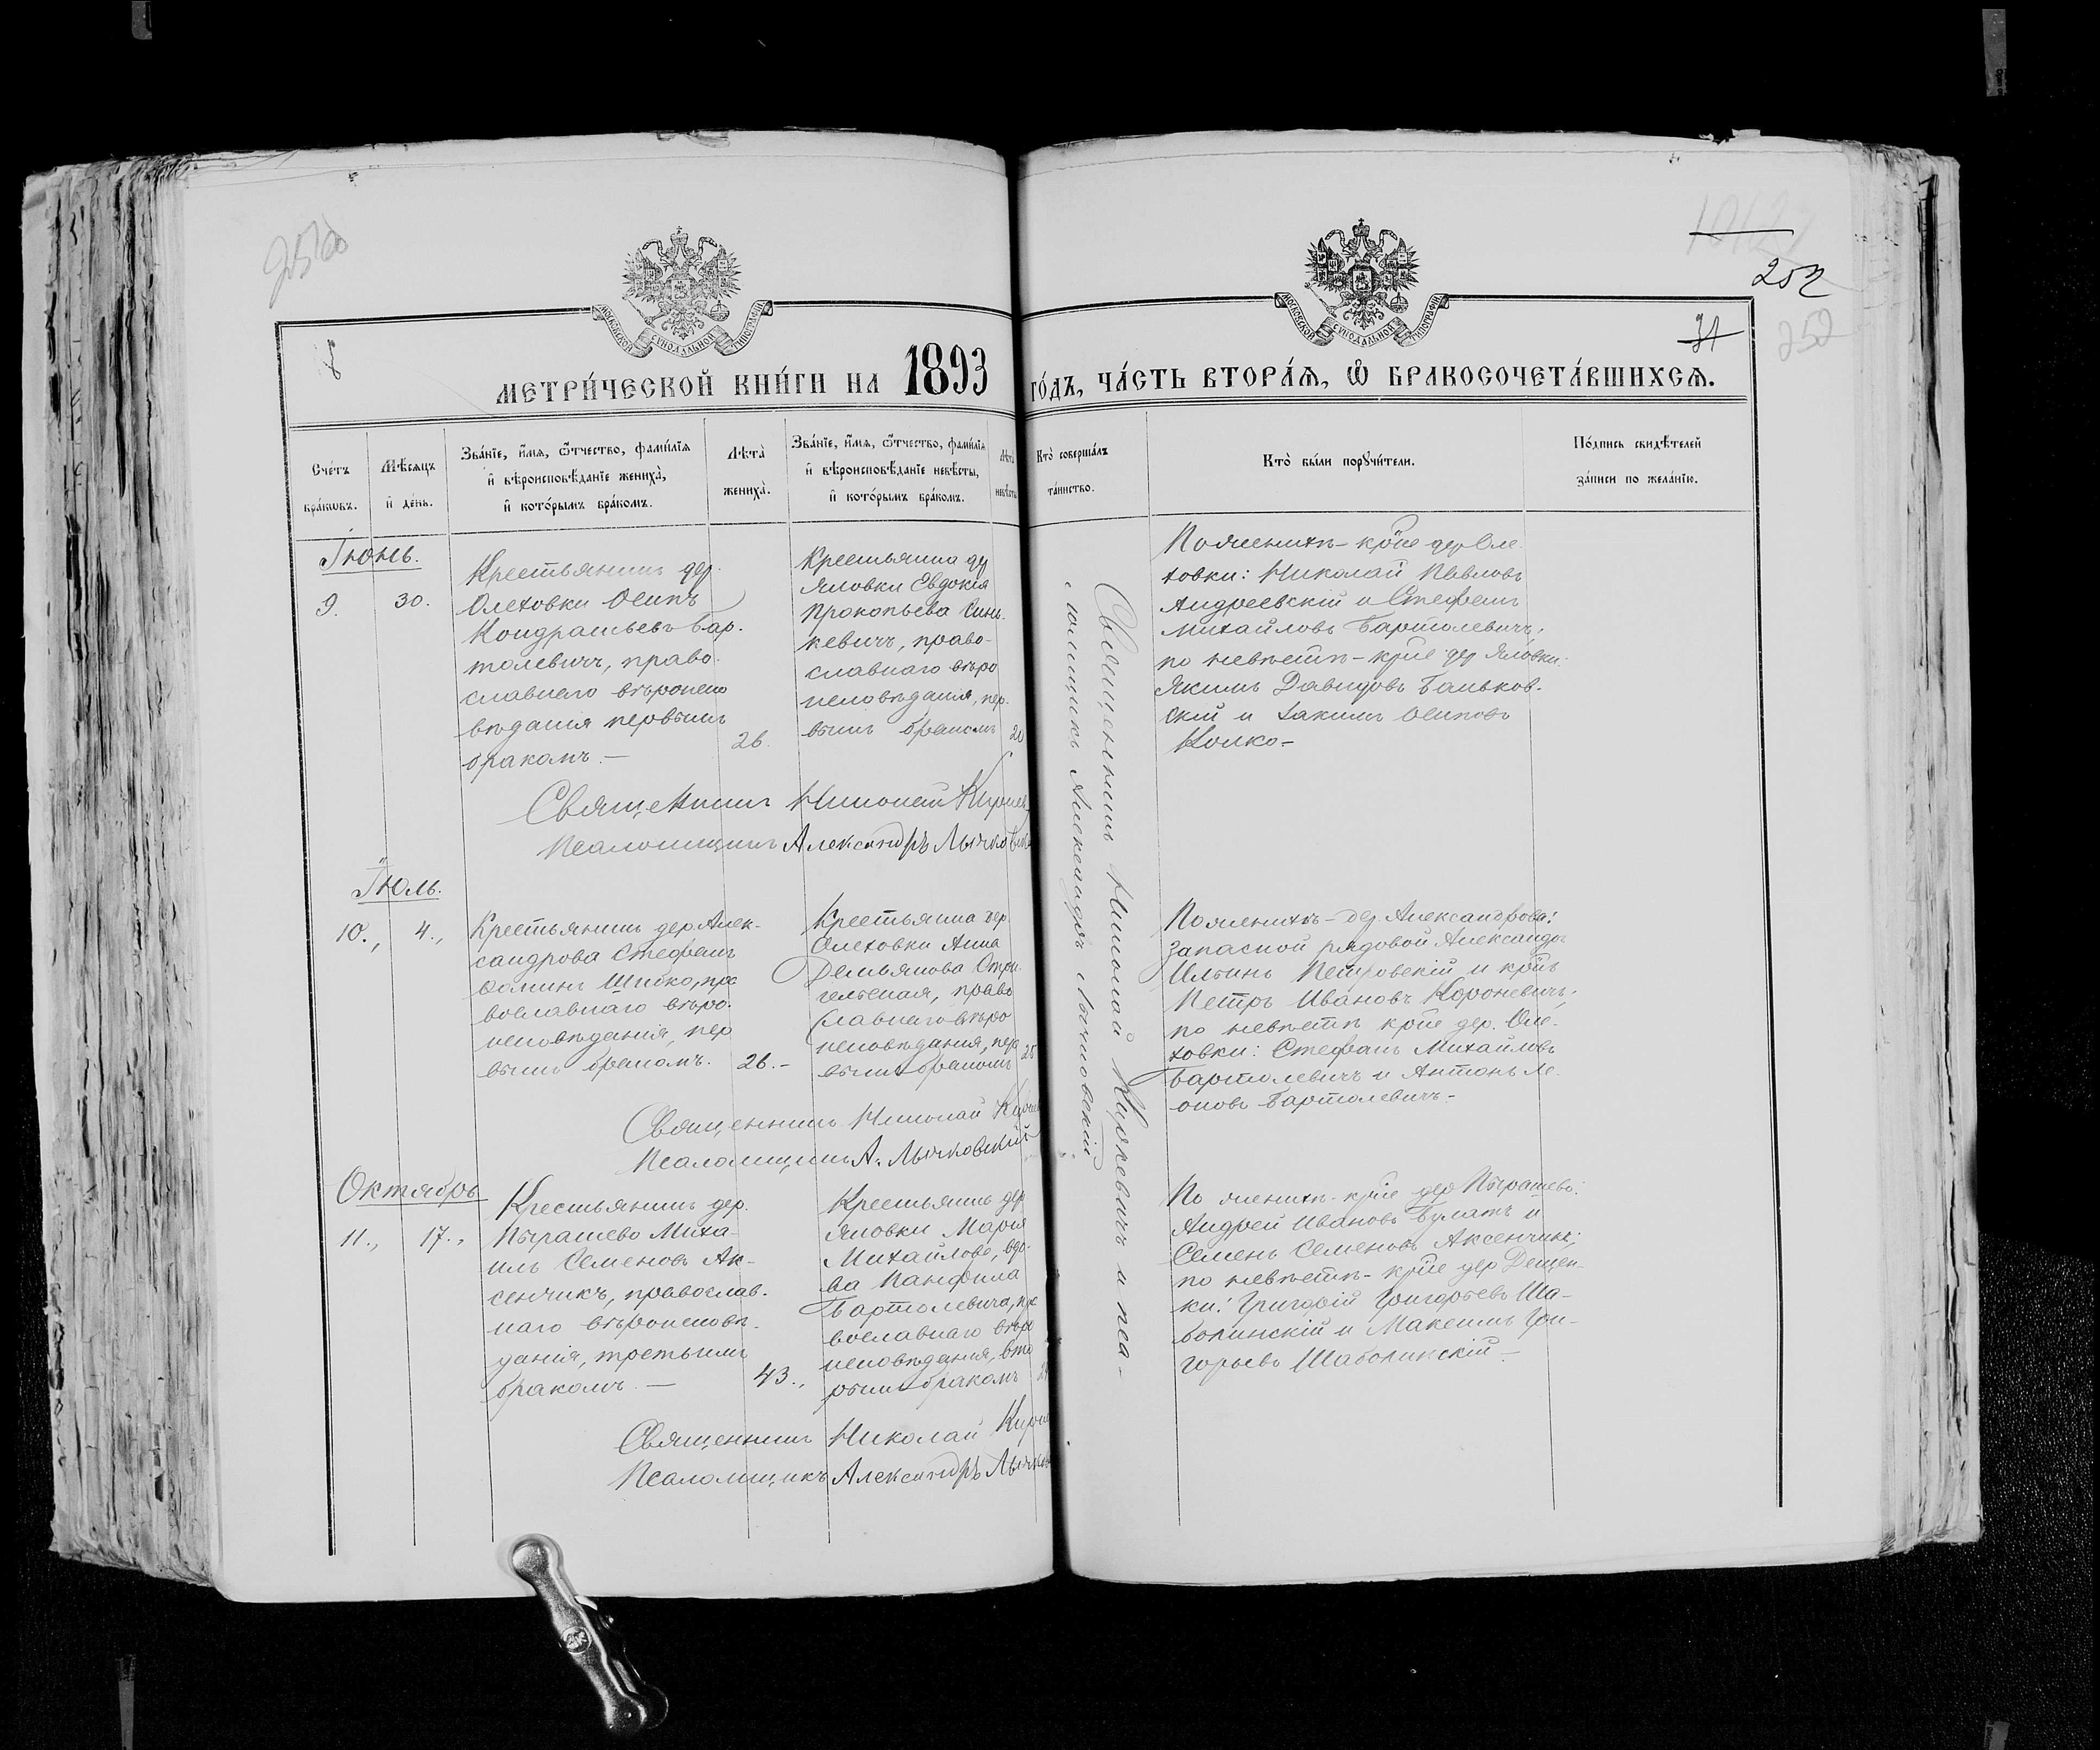 252
31
252
МОСКОВСКОЙ СУНОДАЛЬНОЙ ТИПОГРАФІИ
МОСКОВСКОЙ СУНОДАЛЬНОЙ ТИПОГРАФІИ
МЕТРИ́ЧЕСКОЙ КНИ́ГИ НА 1893 ГО́ДЪ, ЧА́СТЬ ВТОРА́Я, Ѽ БРАКОСОЧЕТА́ВШИХСЯ.
Сче́тъ бра́кωвъ.
Мѣ́сяцъ и҆ де́нь.
Зва́нїе, и҆́мя, ѻ҆́тчество, фами́лїя
и҆ вѣроисповѣ́данїе жениха̀,
и҆ кото́рымъ бра́комъ.
Лѣта̀ жениха̀.
Зва́нїе, и҆́мя, ѻ҆́тчество, фами́лїя
и҆ вѣроисповѣ́данїе невѣ́сты,
и҆ кото́рымъ бра́комъ.
Лѣта̀ невѣ́сты
Кто̀ соверша́лъ та́инство.
Кто̀ бы́ли порꙋчи́тели.
По́дпись свидѣ́телей
за́писи по жела́нїю.
Іюнь.
9.
30.
Крестьянинъ дер.
Олеховки Осипъ
Кондратьевъ Бар.
толевичъ, право
славнаго вѣроиспо
вѣданія первымъ
бракомъ.—
26.
Крестьянка дер
Яловки Евдокія
Прокопьева Синь-
кевичъ, право-
славнаго вѣро
исповѣданія, пер.
вымъ бракомъ
20
По женихѣ - крт̃іе дер Оле.
ховки: Николай Павловъ
Андреевскій и Стефанъ
Михайловъ Бартолевичъ;
по невѣстѣ - крт̃іе дер Яловки.
Якимъ Давидовъ Баньков.
скій и Іакимъ Осиповъ
Колко -
Священникъ Николай
Псаломщикъ Александръ
Іюль.
10.,
4.,
Крестьянинъ дер. Алек-
сандрова Стефанъ
Шпako, пра
вославнаго вѣро.
исповѣданія, пер
вымъ бракомъ.
26.-
Крестьянка дер.
Олеховки Анна
Демьянова
право
славнаго вѣро
исповѣданія, пер
вымъ бракомъ
25
По женихѣ - дер. Александрова:
запасной рядовой Александръ
Ильинъ Петровскій и крт̃нъ
Петръ Ивановъ Короневичъ;
по невѣстѣ крт̃іе дер. Оле.
ховки: Стефанъ Михайловъ
Бартолевичъ и Антонъ Ле.
оновъ Бартолевичъ.-
Священникъ Николай
Псаломщикъ А. Лычковскій
Октябрь
11.,
17.,
Крестьянинъ дер.
Пырашево Миха-
илъ Семеновъ Ак-
сенчикъ, православ.
наго вѣроисповѣ.
данія, третьимъ
бракомъ. —
43.,
Крестьянка дер
Яловки Марія
Михайлова, вдо-
ва Панфила
Бартолевича, пра
вославнаго вѣро
исповѣданія, вто
рымъ бракомъ
По женихѣ - крт̃іе дер Пырашево:
Андрей Ивановъ Булатъ и
Семенъ Семеновъ Аксенчикъ;
по невѣстѣ - крт̃іе дер Дещен-
ки: Григорій Григорьевъ Ша-
болинскій и Максимъ Гри-
горьевъ Шаболинскій -
Священникъ Николай
Псаломщикъ Александръ
Священникъ Николай Киркевичъ и пса-
ломщикъ Александръ Лычковскій